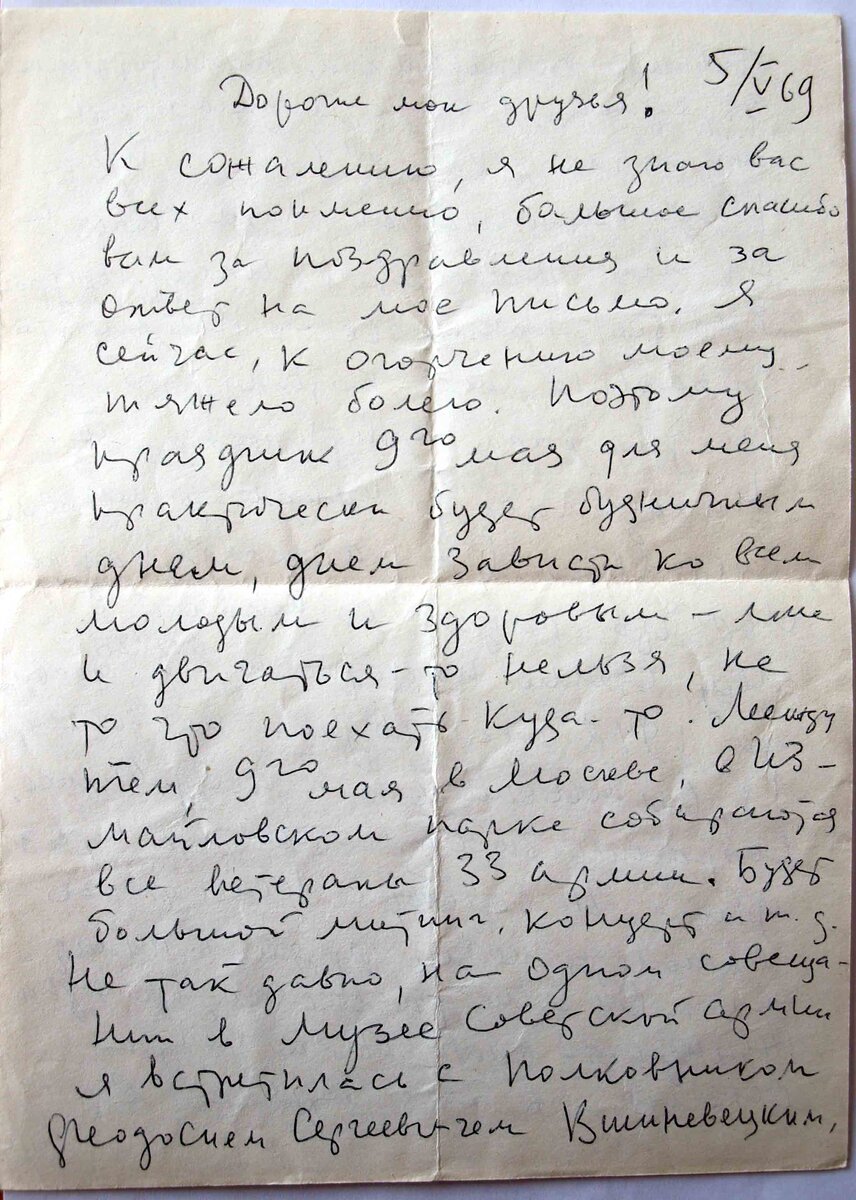 5/V 69
Дорогие мои друзья!
К сожалению, я не знаю вас
всех поименно, большое спасибо
вам за поздравления и за
ответ на мое письмо. Я
сейчас, к огорчению моему
тяжело болею. Поэтому
праздник 9го мая для меня
практически будет будничным
днем, днем зависти ко всем
молодым и здоровым – мне
и двигаться-то нельзя, не
то что поехать куда-то. Между
тем, 9го мая в Москве, в Из-
майловском парке собираются
все ветераны 33 армии. Будет
большой митинг, концерт и т. д.
Не так давно, на одном совеща-
нии в Музее Советской армии
я встретилась с полковником
Феодосием Сергеевичем Вишневецким,